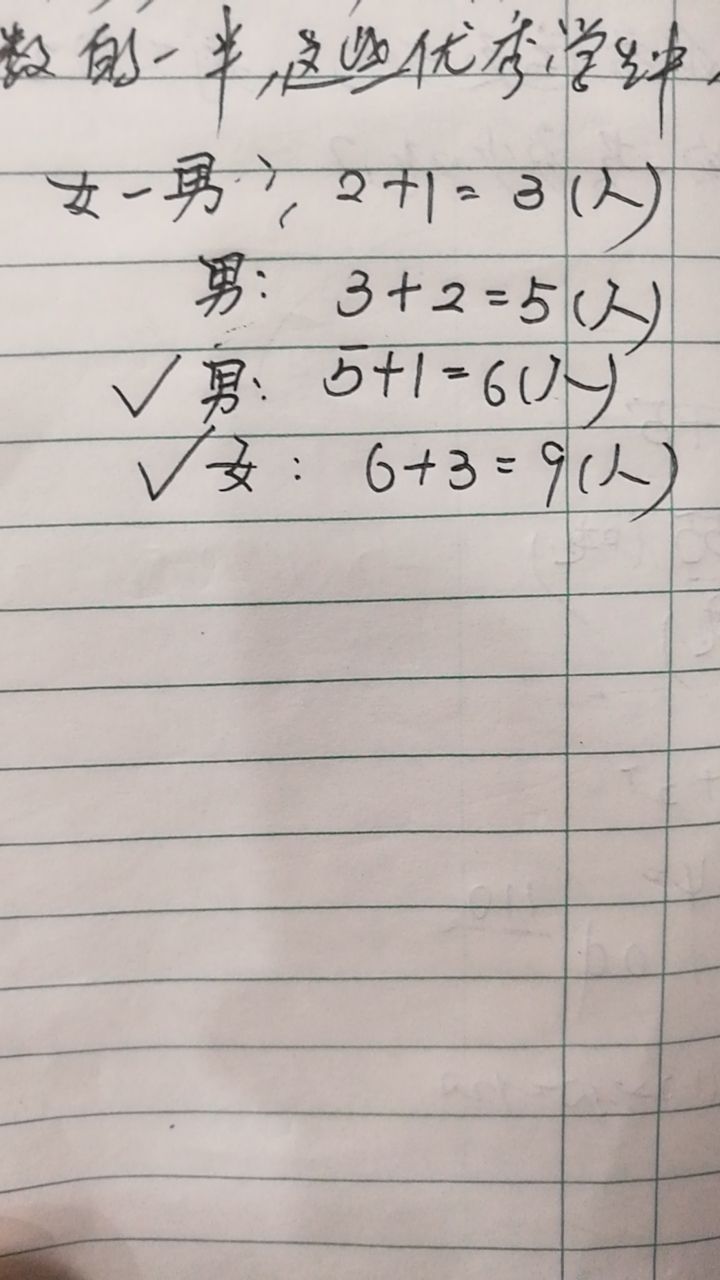 数的一半,这些优秀学生中,
女-男: 2+1=3(人)
男: 3+2=5(人)
✓男: 5+1=6(人)
✓女: 6+3=9(人)